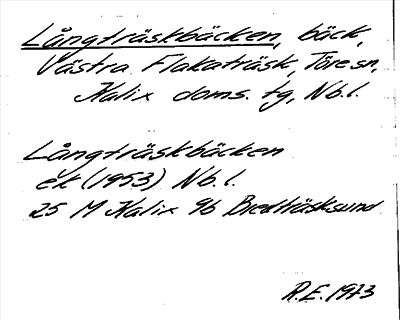 Långträskbäcken, bäck,
Västra Flakaträsk, Töre sn,
Kalix doms. tg, Nb. l.
Långträskbäcken
ek (1953) Nb. l.
25 M Kalix 96 Bredträsksund
R.E. 1973